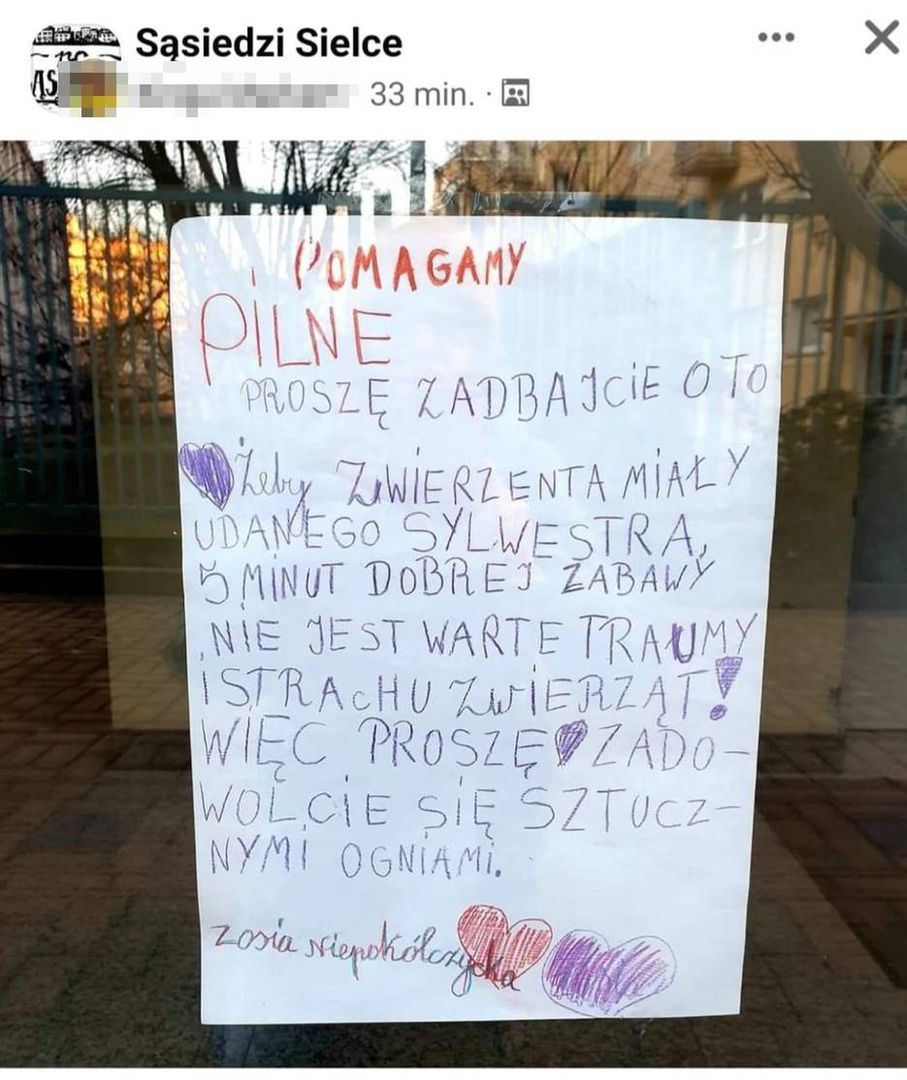 Sąsiedzi Sielce
33 min.
POMAGAMY
PILNE
PROSZĘ ZADBAJCIE O TO
Żeby ZWIERZENTA MIAŁY
UDANEGO SYLWESTRA,
5 MINUT DOBREJ ZABAWY
NIE JEST WARTE TRAUMY
I STRACHU ZWIERZĄT!
WIĘC PROSZĘ ZADO-
WOLCIE SIĘ SZTUCZ-
NYMI OGNIAMI.
Zosia Niepokólczycka